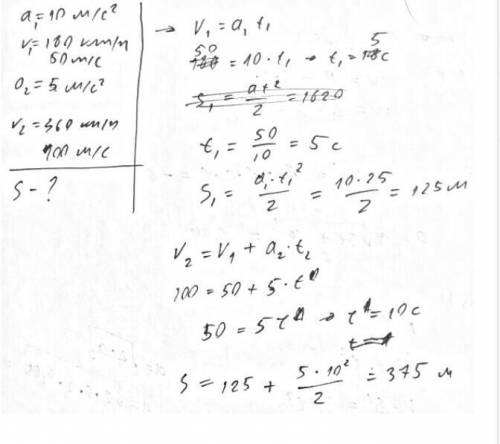 a₁ = 10 м/с²
v₁ = 180 км/ч
50 м/с
a₂ = 5 м/с²
v₂ = 360 км/ч
100 м/с
S - ?
→ V₁ = a₁ t₁
50 = 10 · t₁ → t₁ = 5 с
S₁ = at²/2 = 1620
t₁ = 50/10 = 5 с
S₁ = a₁·t₁²/2 = 10·25/2 = 125 м
V₂ = V₁ + a₂·t₂
100 = 50 + 5·t
50 = 5t → t = 10 с
S = 125 + 5·10²/2 = 375 м